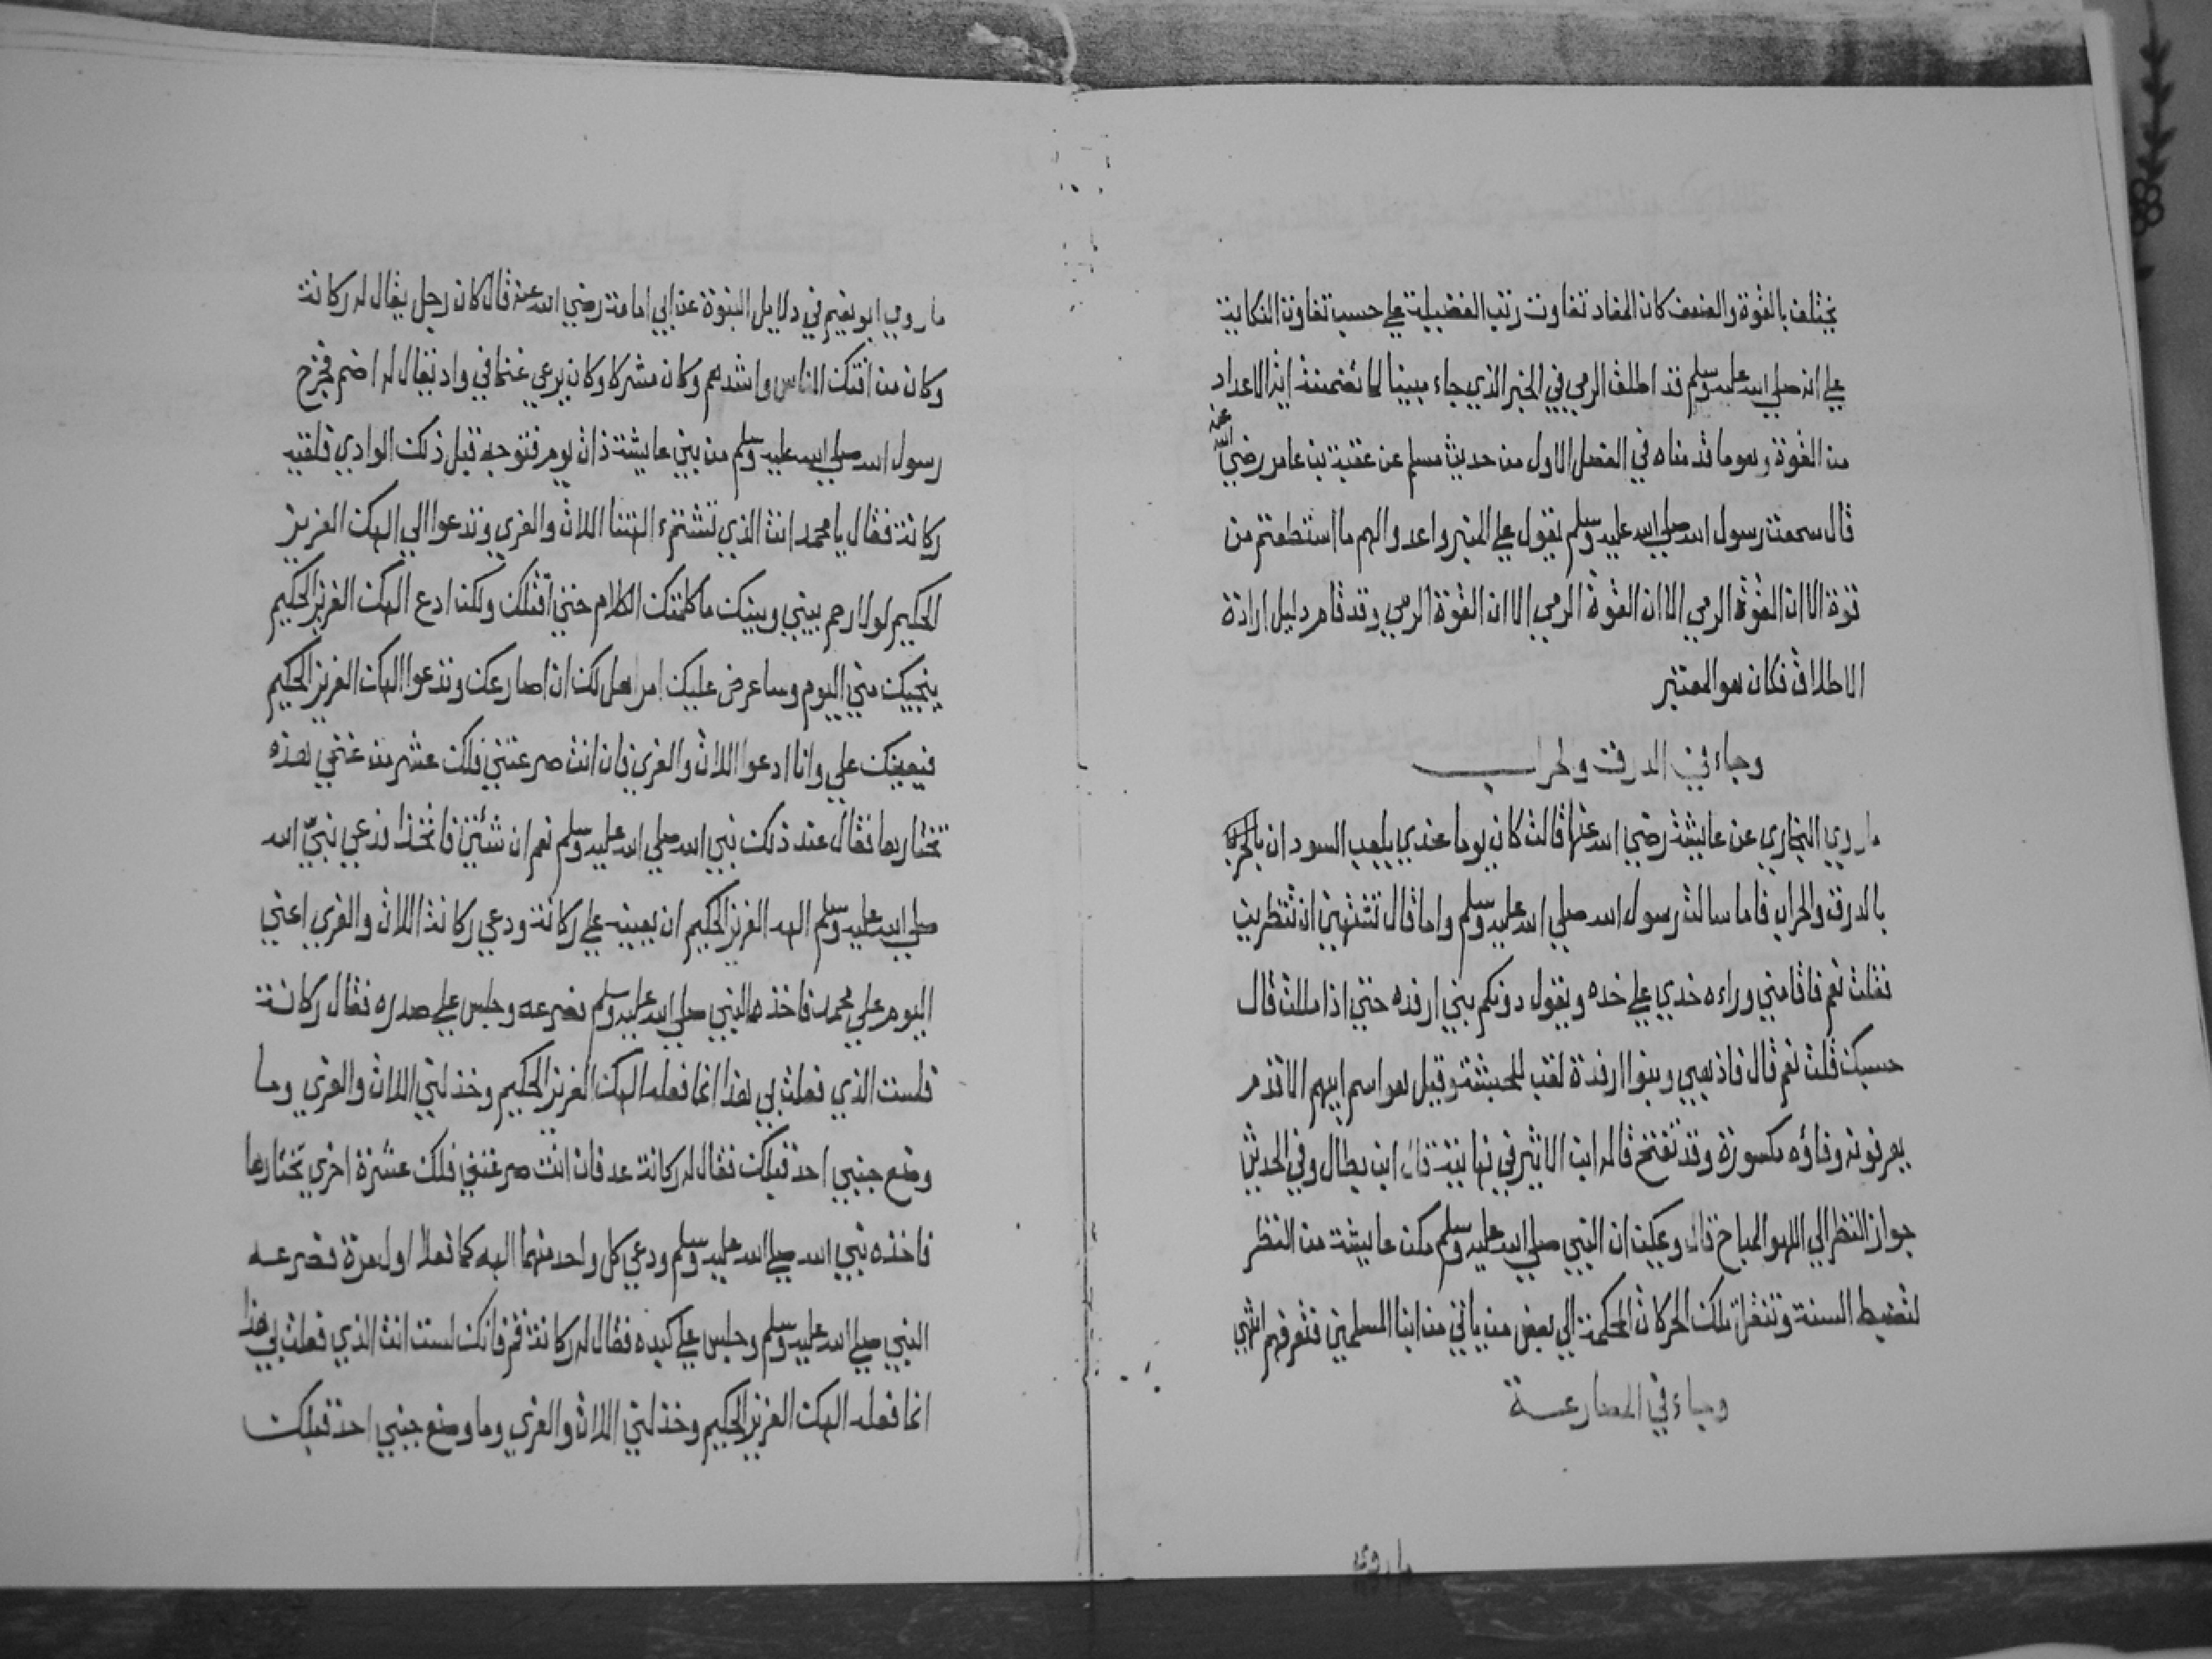 يختلف بالقوة والضعف كان المفاد تفاوت رتب الفضيلة على حسب تفاوت النكاية
على انه صلى الله عليه وسلم قد اطلق الرمي في الخبر الذي جاء مبينا لما تضمنته اية الاعداد
من القوة وهو ما قدمناه في الفصل الاول من حديث مسلم عن عقبة بن عامر رضي الله عنه
قال سمعت رسول الله صلى الله عليه وسلم يقول على المنبر واعدوا لهم ما استطعتم من
قوة الا ان القوة الرمي الا ان القوة الرمي الا ان القوة الرمي وقد قام دليل ارادة
الاطلاق فكان هو المعتبر
وجاء في الدرق والحراب
ما روي البخاري عن عايشة رضي الله عنها قالت كان يوما عندي يلعب السودان
بالدرق والحراب فاما سالت رسول الله صلي الله عليه وسلم واما قال تشتهين ان تنظرين
فقلت نعم فاقامني وراءه خدي على خده ويقول دونكم بني ارفده حتي اذا مللت قال
حسبك قلت نعم قال فاذهبي وبنوا ارفدة لقب للحبشة وقيل هو اسم ابيهم الاقدم
يعرفونه وفاؤه مكسورة وقد تفتح قاله ابن الاثير في نهايته قال ابن بطال وفي الحديث
جواز النظر الي اللهو المباح قال ويمكن ان النبي صلي الله عليه وسلم مكن عايشة من النظر
لتضبط السنة وتنقل تلك الحركات المحكمة الي بعض من ياتي من ابنا المسلمين فتعرفهم انتهي
وجاء في المصارعة
ما روي
ما روي ابو نعيم في دلايل النبوة عن ابي امامة رضي الله عنه قال كان رجل يقال له ركانة
وكان من افتك الناس واشدهم وكان مشركا وكان يرعي غنما في واد يقال له اضم فخرج
رسول الله صلي الله عليه وسلم من بيت عايشة ذات يوم فتوجه قبل ذلك الوادي فلقيه
ركانة فقال يا محمد انت الذي تشتم ءالهتنا اللات والعزي وتدعوا الي الهك العزيز
الحكيم لولا رحم بيني وبينك ما كلمتك الكلام حتي اقتلك ولكن ادع الهك العزيز الحكيم
ينجيك مني اليوم وساعرض عليك امر اهل لك ان اصارعك وتدعوا الهك العزيز الحكيم
فيعينك علي وانا ادعوا اللات والعزي فان انت صرعتني فلك عشر من غنمي هذه
تختارها فقال عند ذلك نبي الله صلي الله عليه وسلم نعم ان شئت فاتخذا فدعي نبي الله
صلي الله عليه وسلم الهه العزيز الحكيم ان يعينه على ركانة ودعي ركانة اللات والعزي اعني
اليوم على محمد فاخذه النبي صلي الله عليه وسلم فصرعه وجلس على صدره فقال ركانة
فلست الذي فعلت بي هذا انما فعله الهك العزيز الحكيم وخذلني اللات والعزي وما
وضع جنبي احد قبلك فقال له ركانة عد فان انت صرعتني فلك عشرة اخري تختارها
فاخذه نبي الله صلي الله عليه وسلم ودعي كل واحد منهما الهه كما فعلا اول مرة فصرعه
النبي صلي الله عليه وسلم وجلس على كبده فقال له ركانة قم فانك لست انت الذي فعلت بي هذا
انما فعله الهك العزيز الحكيم وخذلني اللات والعزي وما وضع جنبي احد قبلك